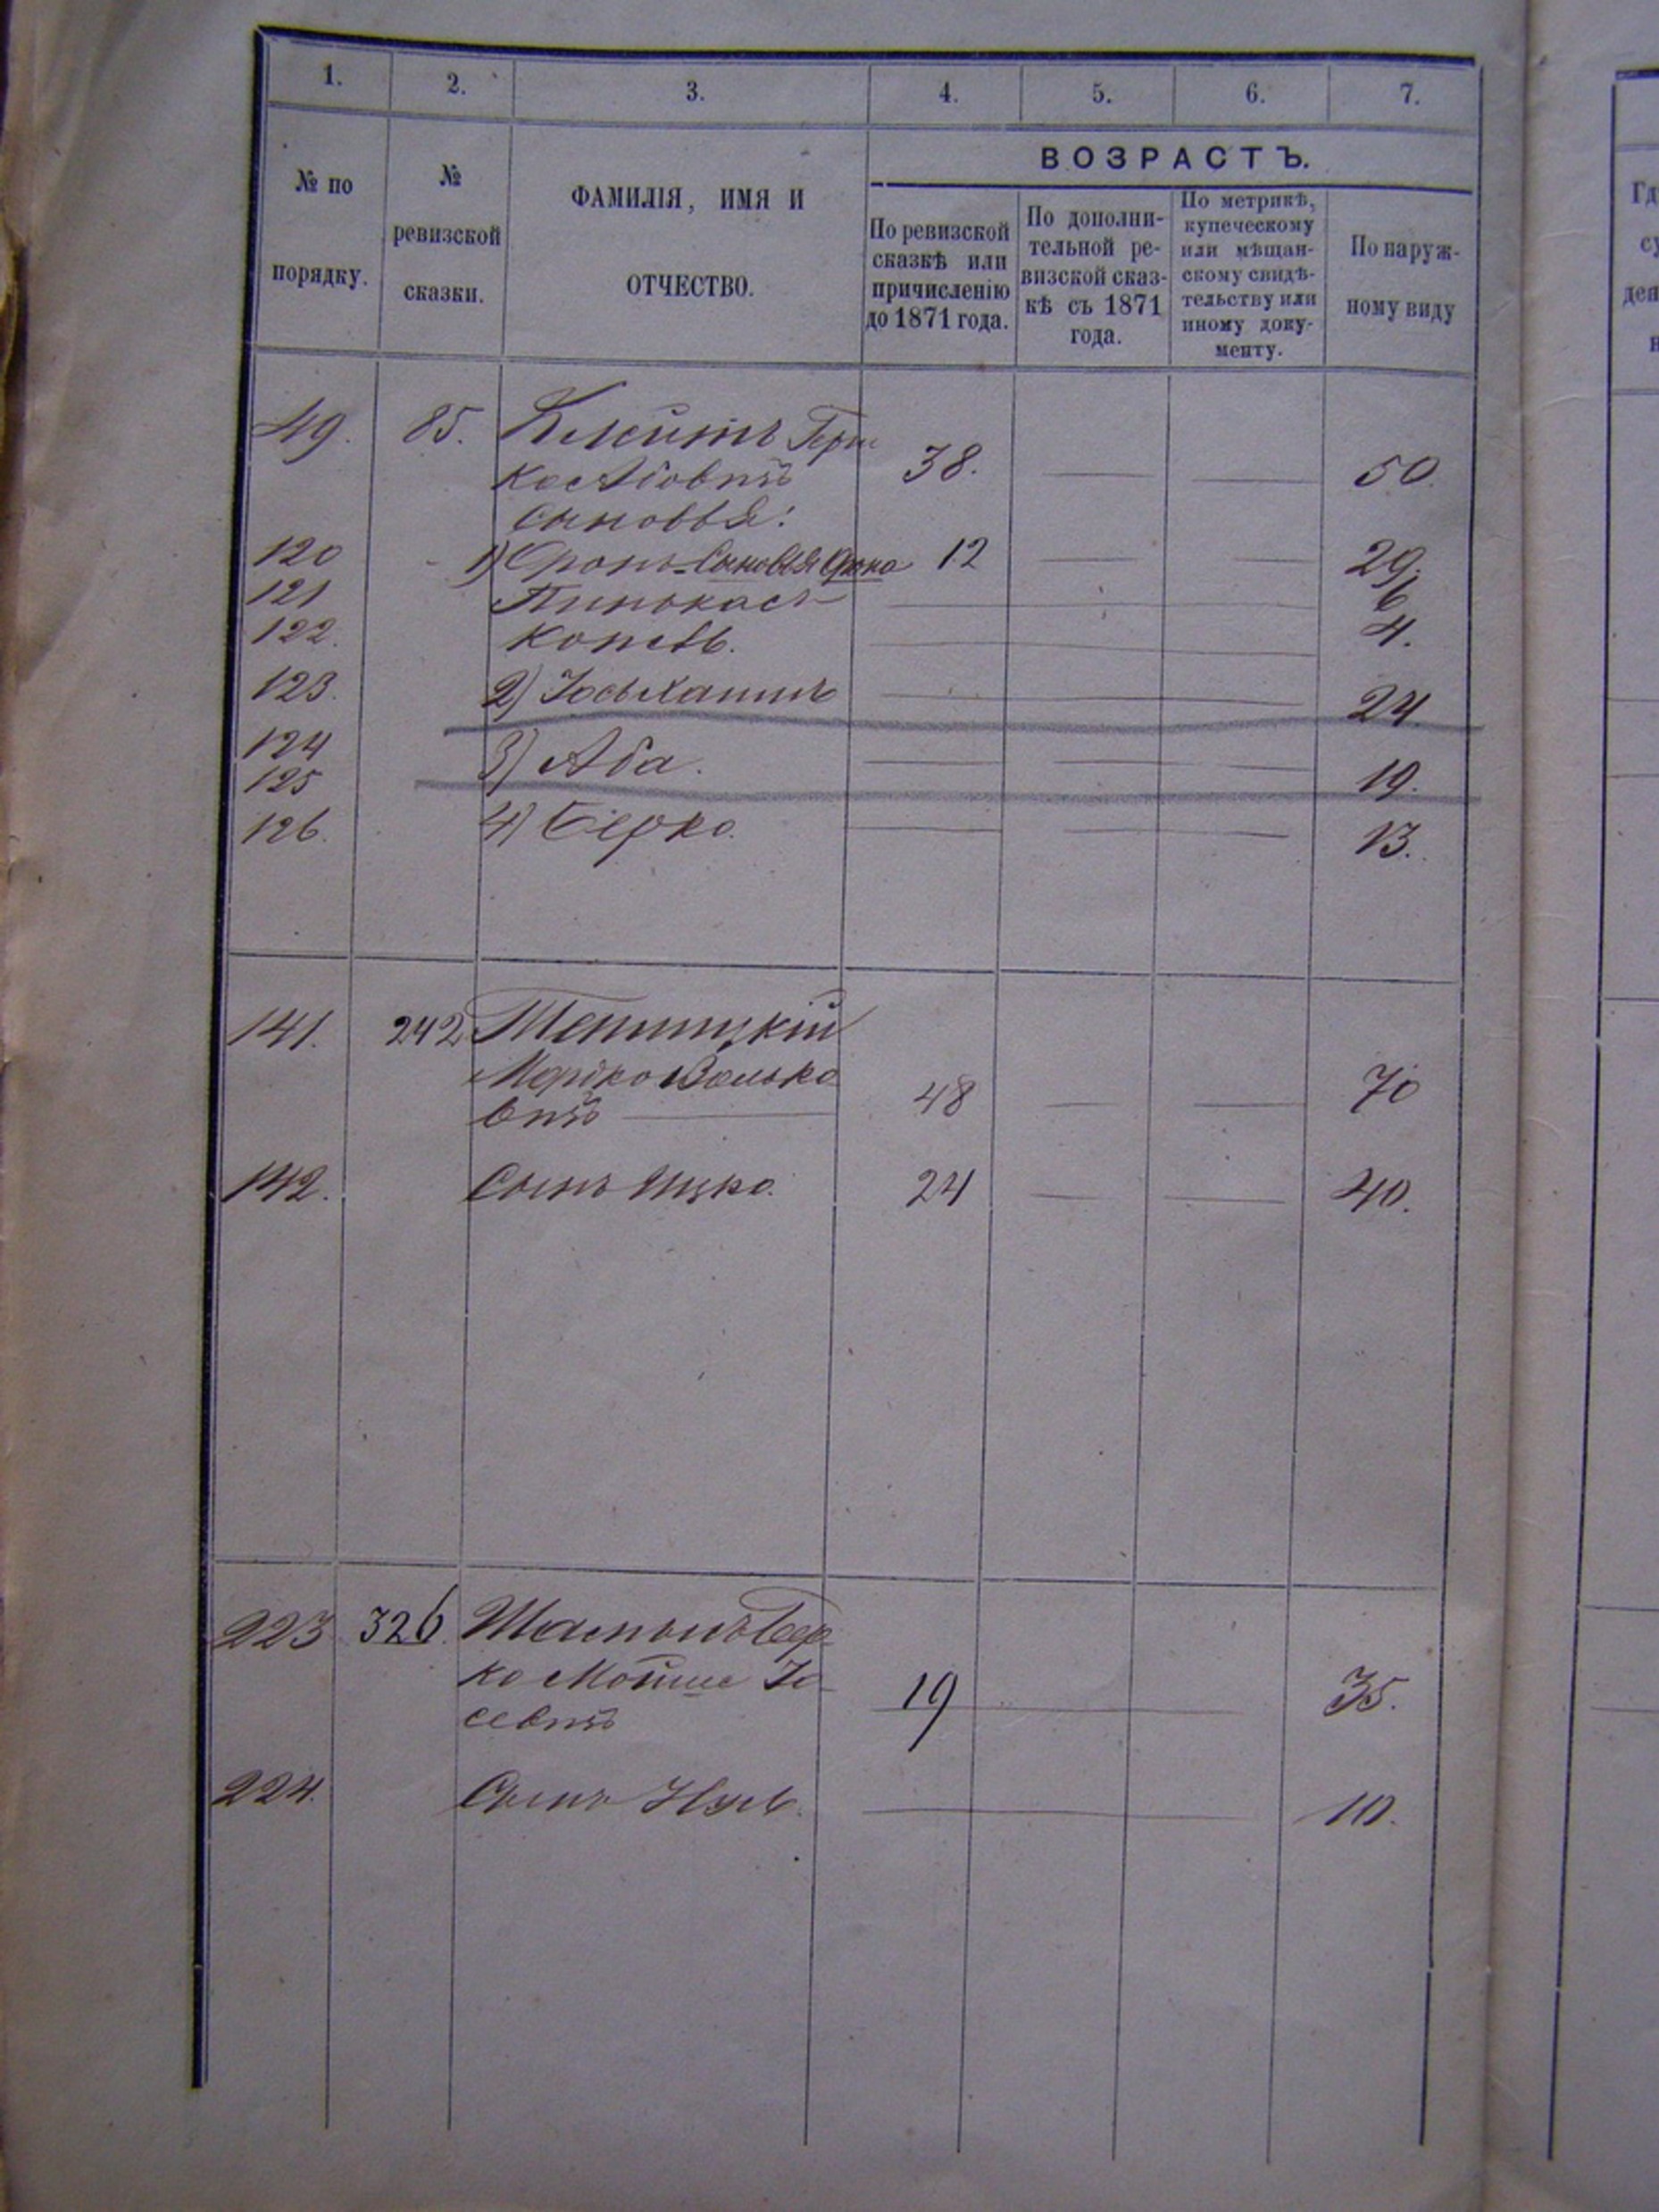 1. 2. 3. 4. 5. 6. 7.
№ по порядку.
№ ревизской сказки.
ФАМИЛІЯ, ИМЯ И
ОТЧЕСТВО.
ВОЗРАСТЪ.
По ревизской
сказкѣ или
причисленію
до 1871 года.
По дополни-
тельной ре-
визской сказ-
кѣ съ 1871
года.
По метрикѣ,
купеческому
или мѣщан-
скому свидѣ-
тельству или
иному доку-
менту.
По наруж-
ному виду
49. 85. Клейтъ Герш
ко Абовичъ 38. — — 50.
Сыновья:
120 1) Сроль Сыновья Срока 12 — — 29.
121 Пинькасъ — 6
122. Копель. — 4.
123. 2) — 24.
124 3) Аба. — — 19.
125
126. 4) Берко. — — 13.
141. 242
Мошко Волько
вичъ — 48 — — 70
142. Сынъ Ицко. 24 — — 40.
223 326. Бер-
ко Мойше Іо-
севичъ 19 — 35.
224. Сынъ — 10.
Гд
су
ден